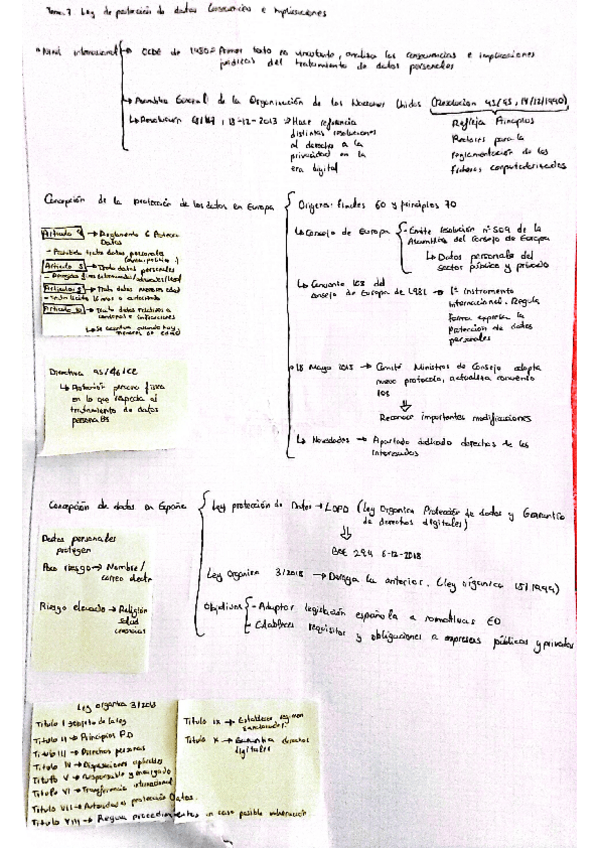 Tema.7 Ley de protección de datos Consecuencias e implicaciones
Nivel internacional → OCDE de 1980 = Primer texto no vinculante, analiza las consecuencias e implicaciones
jurídicas del tratamiento de datos personales
→ Asamblea General de la Organización de las Naciones Unidas (Resolucion 45/95, 14/12/1990)
↳ Resolución 18-12-2013 → Hace referencia
distintas resoluciones
al derecho a la
privacidad en la
era digital
Refleja Principios
Rectores para la
reglamentación de los
ficheros computadorizados
Concepción de la protección de los datos en Europa
Origenes: finales 60 y principios 70
↳ Consejo de Europa → Emite resolución nº 509 de la
Asamblea del Consejo de Europa
↳ Datos personales del
sector público y privado
↳ Convenio 108 del
consejo de Europa de 1981 → 1º Instrumento
Internacional. Regula
forma expresa la
Protección de datos
personales
18 Mayo 2018 → Comité Ministros de Consejo adopta
nuevo protocolo, actualiza convenio
108
⇓
Reconocer importantes modificaciones
↳ Novedades → Apartado dedicado derechos de los
interesados
→ Reglamento G Protecc
Datos
→ Trata datos personales
→ Trata datos menores edad
→ Trata datos relativos a
condenas e infracciones
Directiva 95/46/CE
↳ Protección persona física
en lo que respecta al
tratamiento de datos
personales
Concepción de datos en España
Ley protección de Datos → LOPD (Ley Organica Protección de datos y Garantía
de derechos digitales)
⇓
BOE 294 6-12-2018
Ley Organica 3/2018 → Deroga la anterior. (Ley órganica 15/1999)
Objetivos - Adaptar legislación española a normativas EU
- Establecer requisitos y obligaciones a empresas públicas y privadas
Datos personales
protegen
Poco riesgo → Nombre/
correo
Riesgo elevado → Religión
salud
creencias
Ley organica 3/2018
Titulo I → objeto de la ley
Titulo II → Principios P.D
Titulo III → Derechos personas
Titulo IV → Disposiciones aplicables
Titulo V → Responsable y encargado
Titulo VI → Transferencia internacional
Titulo VII → Autoridades protección Datos.
Titulo VIII → Regula procedimientos en caso posible vulneración
Titulo IX → Establece régimen
sancionador
Titulo X → Garantía derechos
digitales